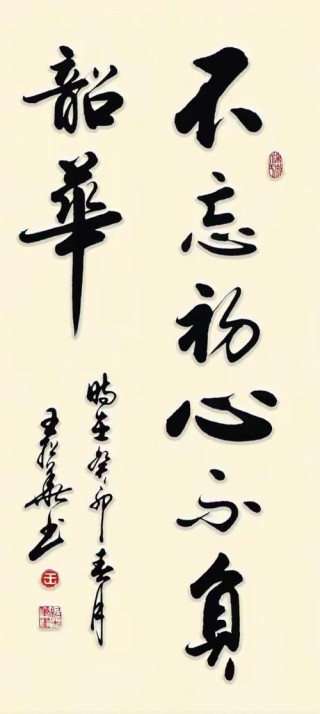 不忘初心不負
韶華
時在癸卯春月
王 華書
王